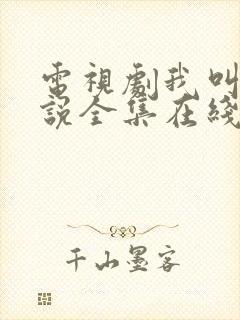 電視劇我叫
說全集在綫
千山墨客